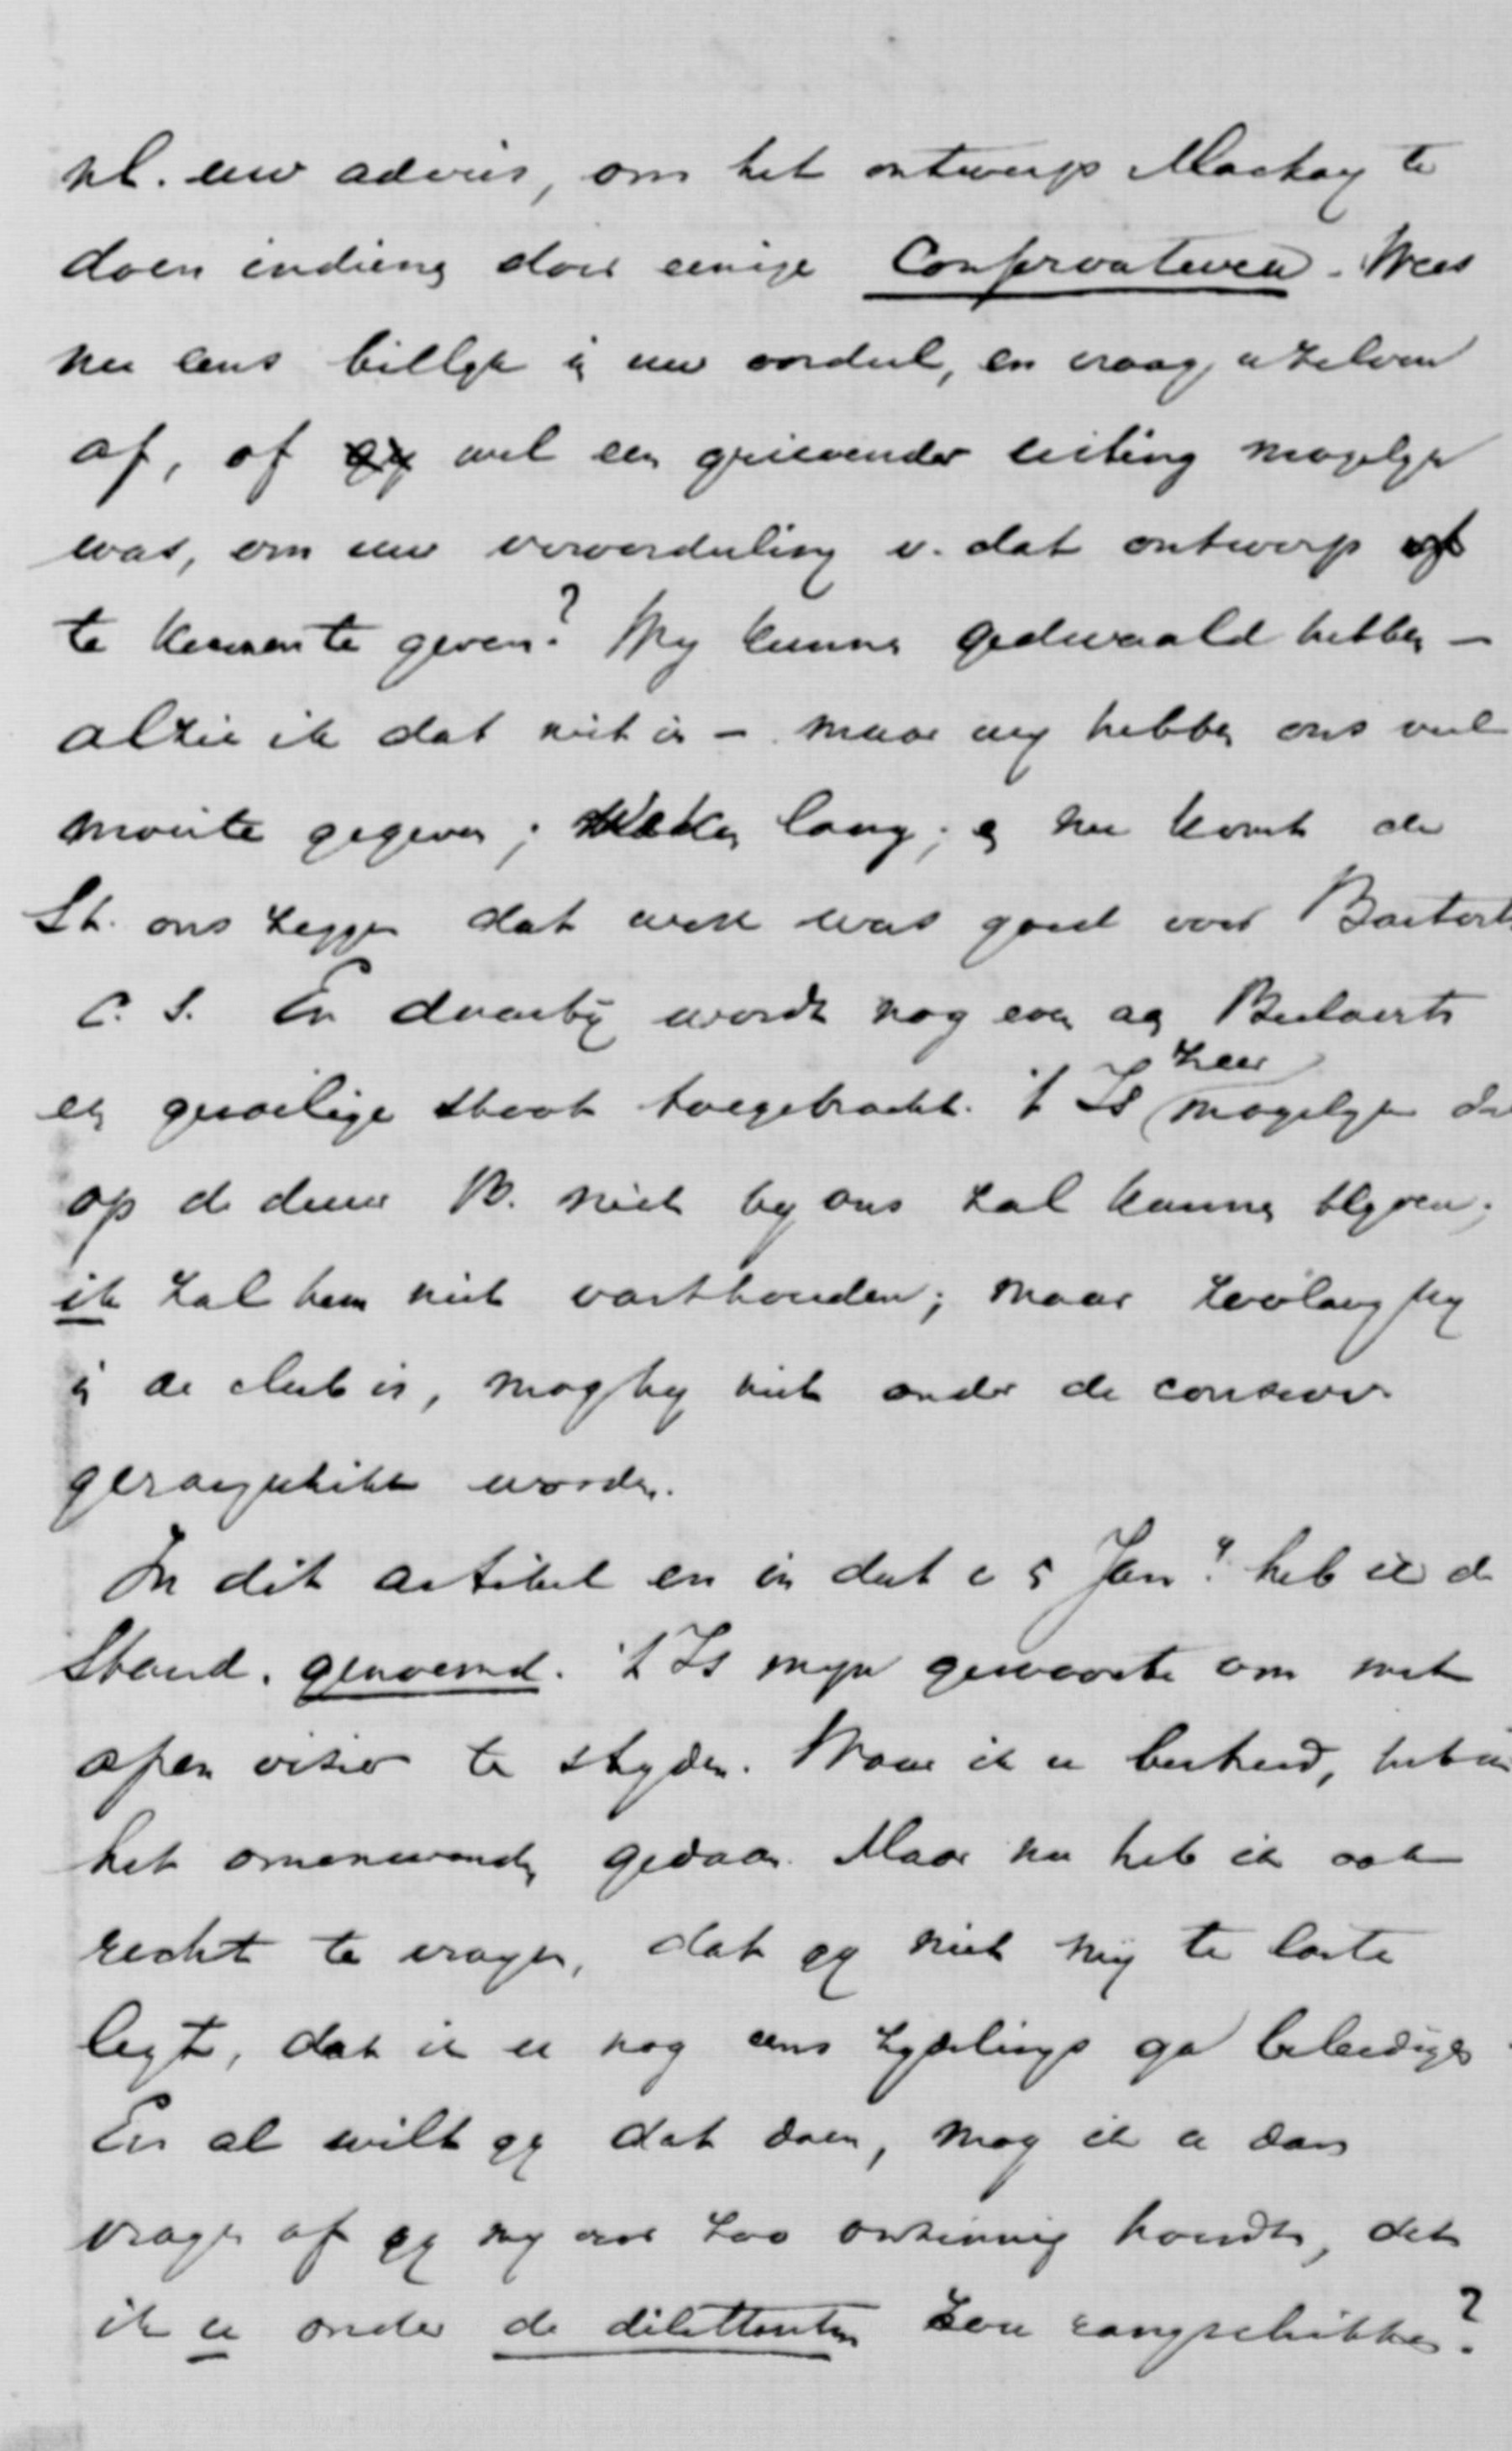 nl. uw advies, om het ontwerp Mackay te
doen indienen door eenige Conservatieven. Wees
nu eens billijk in uw oordeel, en vraag u zelven
af, of wel een grievender uiting mogelijk
was, om uw veroordeeling v. dat ontwerp
te kennen te geven? Wij kunnen gedwaald hebben –
al zie ik dat niet in – maar wij hebben ons veel
moeite gegeven; weken lang; en nu komt de
St. ons zeggen dat werk was goed voor Bastert
c. s. En daarbij wordt nog even aan Beelaerts
een gevoelige stoot toegebracht. 't Is zeer mogelijk dat
op de duur B. niet bij ons zal kunnen blijven;
ik zal hem niet vasthouden; maar zoolang hij
in de club is, mag hij niet onder de conserv.
gerangschikt worden.
In dit artikel en in dat v 5 Jan. heb ik de
Stand. genoemd. 't Is mijn gewoonte om met
open vizier te strijden. Waar ik u bestreed, heb ik
het onomwonden gedaan. Maar nu heb ik ook
recht te vragen, dat gij niet mij te laste
legt, dat ik u nog eens zijdelings ga beleedigen.
En al wilt gij dat doen, mag ik u dan
vragen of gij mij voor zoo onzinnig houdt, dat
ik u onder de dilettanten zou rangschikken?